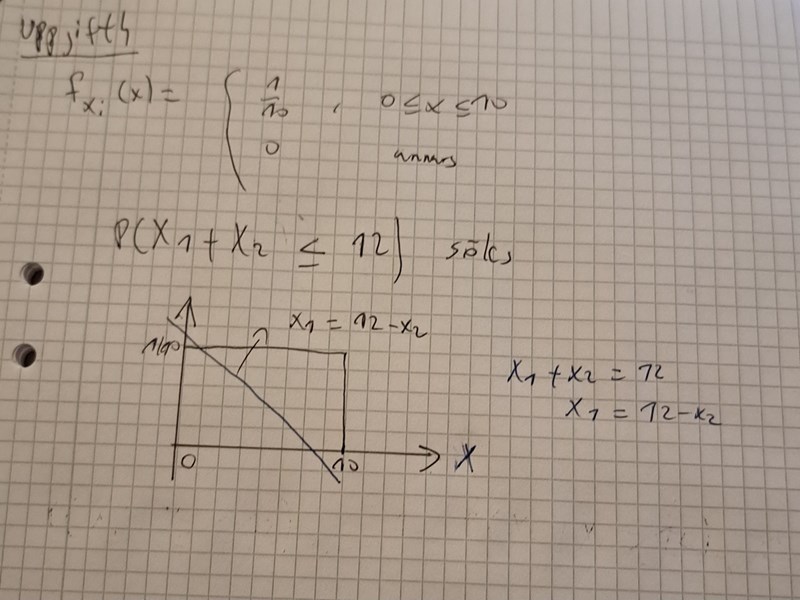 Uppgift
f_{x_i}(x) = { 1/10 , 0 ≤ x ≤ 10
0 annars
P(X1 + X2 ≤ 12) sökes
x1 = 12 - x2
1/10
x1 + x2 = 12
x1 = 12 - x2
0 10 X